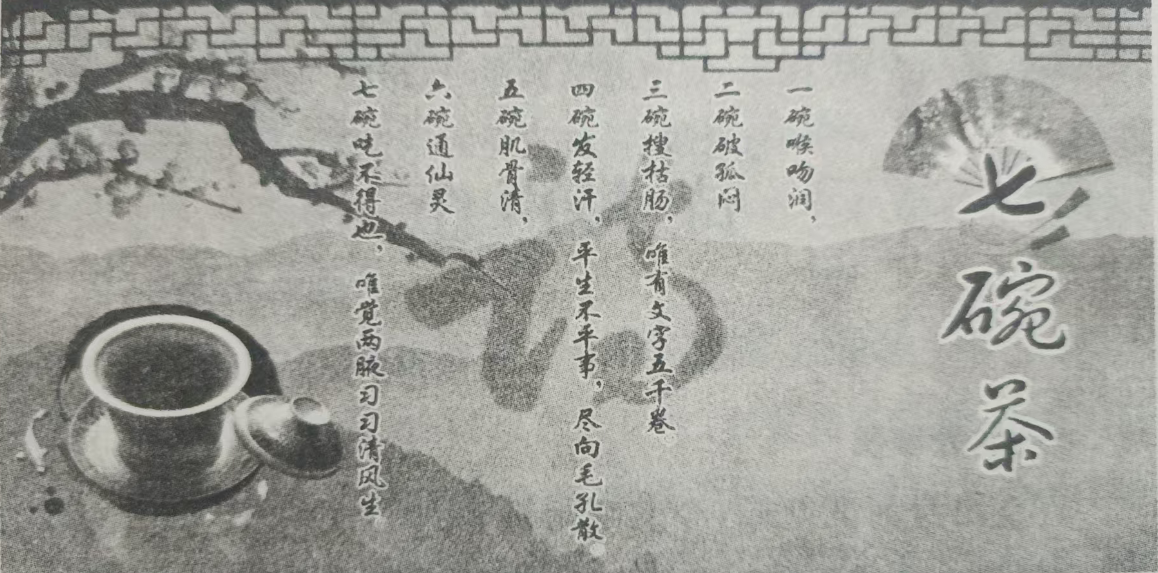 七碗茶
一碗喉吻润，
二碗破孤闷
三碗搜枯肠，唯有文字五千卷
四碗发轻汗，平生不平事，尽向毛孔散
五碗肌骨清，
六碗通仙灵
七碗吃不得也，唯觉两腋习习清风生